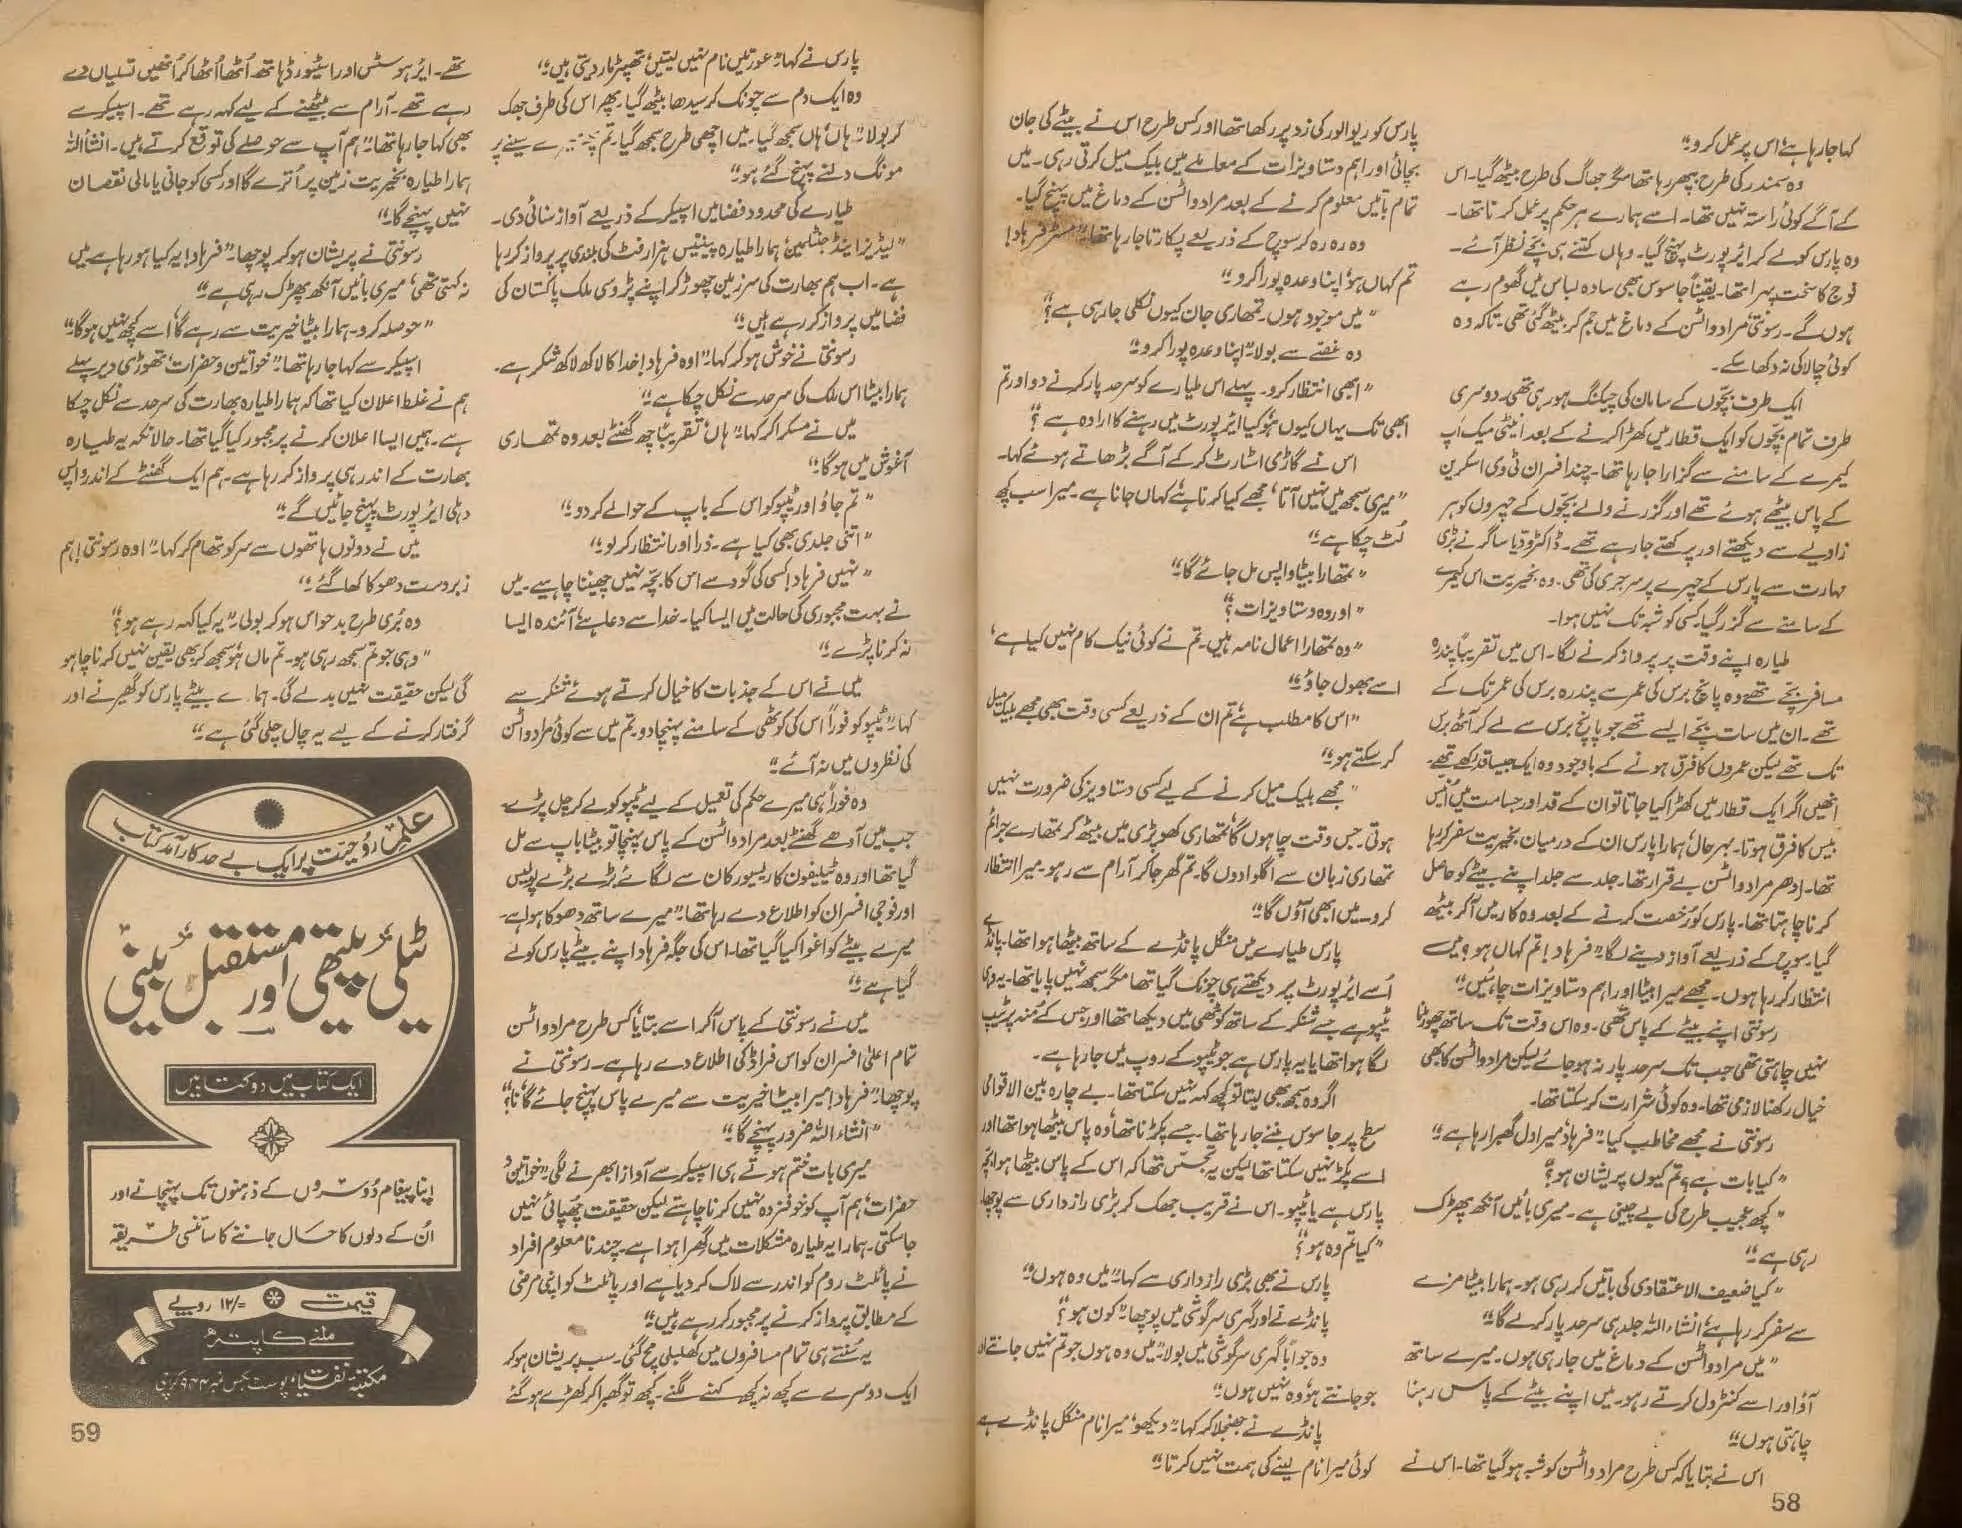 کہا جا رہا ہے، اس پر عمل کرو“
وہ سمندر کی طرح بپھر رہا تھا مگر جھاگ کی طرح بیٹھ گیا۔ اس
کے آگے کوئی راستہ نہیں تھا۔ اسے ہمارے ہر حکم پر عمل کرنا تھا۔
وہ پارس کو لے کر ائر پورٹ پہنچ گیا۔ وہاں کتنے ہی بچے نظر آئے۔
فوج کا سخت پہرا تھا۔ یقیناً جاسوس بھی سادہ لباس میں گھوم رہے
ہوں گے۔ رسونتی، مراد واٹسن کے دماغ میں جم کر بیٹھ گئی تھی۔ تاکہ وہ
کوئی چالاکی نہ دکھا سکے۔
ایک طرف بچوں کے سامان کی چیکنگ ہو رہی تھی۔ دوسری
طرف تمام بچوں کو ایک قطار میں کھڑا کرنے کے بعد انیٹی میک اپ
کیمرے کے سامنے سے گزارا جا رہا تھا۔ چند افسران ٹی وی اسکرین
کے پاس بیٹھے ہوئے تھے اور گزرنے والے بچوں کے چہروں کو ہر
زاویے سے دیکھتے اور پرکھتے جا رہے تھے۔ ڈاکٹر ودیا ساگر نے بڑی
مہارت سے پارس کے چہرے پر سرجری کی تھی۔ وہ بخیریت اس کیمرے
کے سامنے سے گزر گیا۔ کسی کو شبہ تک نہیں ہوا۔
طیارہ اپنے وقت پر پرواز کرنے لگا۔ اس میں تقریباً پندرہ
مسافر بچے تھے وہ پانچ برس کی عمر سے پندرہ برس کی عمر تک کے
تھے۔ ان میں سات بچے ایسے تھے جو پانچ برس سے لے کر آٹھ برس
تک تھے لیکن عمروں کا فرق ہونے کے باوجود وہ ایک جیسا قد رکھتے تھے۔
انھیں اگر ایک قطار میں کھڑا کیا جاتا تو ان کے قد اور جسامت میں انیس
بیس کا فرق ہوتا۔ بہرحال، ہمارا پارس ان کے درمیان بخیریت سفر کر رہا
تھا۔ ادھر مراد واٹسن بے قرار تھا۔ جلد سے جلد اپنے بیٹے کو حاصل
کرنا چاہتا تھا۔ پارس کو رخصت کرنے کے بعد وہ کار میں آکر بیٹھ
گیا۔ سوچ کے ذریعے آواز دینے لگا ”فرہاد! تم کہاں ہو؟ میں
انتظار کر رہا ہوں۔ مجھے میرا بیٹا اور اہم دستاویزات چاہئیں“
رسونتی اپنے بیٹے کے پاس تھی۔ وہ اس وقت تک ساتھ چھوڑنا
نہیں چاہتی تھی جب تک سرحد پار نہ ہو جائے لیکن مراد واٹسن کا بھی
خیال رکھنا لازمی تھا۔ وہ کوئی شرارت کر سکتا تھا۔
رسونتی نے مجھے مخاطب کیا ”فرہاد! میرا دل گھبرا رہا ہے“
”کیا بات ہے؟ تم کیوں پریشان ہو؟“
”کچھ عجیب طرح کی بے چینی ہے۔ میری بائیں آنکھ پھڑک
رہی ہے“
”کیا ضعیف الاعتقادی کی باتیں کر رہی ہو۔ ہمارا بیٹا مزے
سے سفر کر رہا ہے، انشاءاللہ جلد ہی سرحد پار کرلے گا“
”میں مراد واٹسن کے دماغ میں جا رہی ہوں۔ میرے ساتھ
آؤ اور اسے کنٹرول کرتے رہو۔ میں اپنے بیٹے کے پاس رہنا
چاہتی ہوں“
اس نے بتایا کہ کس طرح مراد واٹسن کو شبہ ہو گیا تھا۔ اس نے
پارس کو ریوالور کی زد پر رکھا تھا اور کس طرح اس نے بیٹے کی جان
بچائی اور اہم دستاویزات کے معاملے میں بلیک میل کرتی رہی۔ میں
تمام باتیں معلوم کرنے کے بعد مراد واٹسن کے دماغ میں پہنچ گیا۔
وہ رہ رہ کر سوچ کے ذریعے پکارتا جا رہا تھا ”مسٹر فرہاد!
تم کہاں ہو؟ اپنا وعدہ پورا کرو“
”میں موجود ہوں۔ تمھاری جان کیوں نکلی جا رہی ہے؟“
وہ غصے سے بولا ”اپنا وعدہ پورا کرو“
”ابھی انتظار کرو۔ پہلے اس طیارے کو سرحد پار کرنے دو اور تم
ابھی تک یہاں کیوں ہو؟ کیا ائر پورٹ میں رہنے کا ارادہ ہے؟“
اس نے گاڑی اسٹارٹ کر کے آگے بڑھاتے ہوئے کہا۔
”میری سمجھ میں نہیں آتا، مجھے کیا کرنا ہے، کہاں جانا ہے۔ میرا سب کچھ
لٹ چکا ہے“
”تمھارا بیٹا واپس مل جائے گا“
”اور وہ دستاویزات؟“
”وہ تمھارا اعمال نامہ ہیں۔ تم نے کوئی نیک کام نہیں کیا ہے،
اسے بھول جاؤ“
”اس کا مطلب ہے، تم ان کے ذریعے کسی وقت بھی مجھے بلیک میل
کر سکتے ہو“
”مجھے بلیک میل کرنے کے لیے کسی دستاویز کی ضرورت نہیں
ہوتی۔ جس وقت چاہوں گا، تمھاری کھوپڑی میں بیٹھ کر تمھارے جرائم
تمھاری زبان سے اگلوا دوں گا۔ تم گھر جا کر آرام سے رہو۔ میرا انتظار
کرو۔ میں ابھی آؤں گا“
پارس طیارے میں منگل پانڈے کے ساتھ بیٹھا ہوا تھا۔ پانڈے
اُسے ائر پورٹ پر دیکھتے ہی چونک گیا تھا مگر سمجھ نہیں پایا تھا۔ یہ وہی
ٹیپو ہے جسے شنکر کے ساتھ کوٹھی میں دیکھا تھا اور جس کے منہ پر ٹیپ
لگا ہوا تھا یا یہ پارس ہے جو ٹیپو کے روپ میں جا رہا ہے۔
اگر وہ سمجھ بھی لیتا تو کچھ کہہ نہیں سکتا تھا۔ بے چارہ بین الاقوامی
سطح پر جاسوس بننے جا رہا تھا۔ جسے پکڑنا تھا، وہ پاس بیٹھا ہوا تھا اور
اسے پکڑ نہیں سکتا تھا لیکن یہ تجسس تھا کہ اس کے پاس بیٹھا ہوا بچہ
پارس ہے یا ٹیپو۔ اس نے قریب جھک کر بڑی رازداری سے پوچھا۔
”کیا تم وہ ہو؟“
پارس نے بھی بڑی رازداری سے کہا ”میں وہ ہوں“
پانڈے نے اور گہری سرگوشی میں پوچھا ”کون ہو؟“
وہ جواباً گہری سرگوشی میں بولا ”میں وہ ہوں جو تم نہیں جانتے اور
جو جانتے ہو، وہ نہیں ہوں“
پانڈے نے جھنجلا کر کہا ”دیکھو، میرا نام منگل پانڈے ہے
کوئی میرا نام لینے کی ہمت نہیں کرتا“
58
پارس نے کہا ”عورتیں نام نہیں لیتیں، تھپڑ مار دیتی ہیں“
وہ ایک دم سے چونک کر سیدھا بیٹھ گیا۔ پھر اس کی طرف جھک
کر بولا ”ہاں، ہاں سمجھ گیا۔ میں اچھی طرح سمجھ گیا۔ تم میرے سینے پر
مونگ دلنے پہنچ گئے ہو“
طیارے کی محدود فضا میں اسپیکر کے ذریعے آواز سنائی دی۔
”لیڈیز اینڈ جنٹلمین! ہمارا طیارہ پینتیس ہزار فٹ کی بلندی پر پرواز کر رہا
ہے۔ اب ہم بھارت کی سرزمین چھوڑ کر اپنے پڑوسی ملک پاکستان کی
فضا میں پرواز کر رہے ہیں“
رسونتی نے خوش ہو کر کہا ”اوہ فرہاد! خدا کا لاکھ لاکھ شکر ہے۔
ہمارا بیٹا اس ملک کی سرحد سے نکل چکا ہے“
میں نے مسکرا کر کہا ”ہاں، تقریباً چھ گھنٹے بعد وہ تمھاری
آغوش میں ہو گا“
”تم جاؤ اور ٹیپو کو اس کے باپ کے حوالے کر دو“
”اتنی جلدی بھی کیا ہے۔ ذرا اور انتظار کر لو“
”نہیں فرہاد! کسی کی گود سے اس کا بچہ نہیں چھیننا چاہیے۔ میں
نے بہت مجبوری کی حالت میں ایسا کیا۔ خدا سے دعا ہے، آئندہ ایسا
نہ کرنا پڑے“
میں نے اس کے جذبات کا خیال کرتے ہوئے شنکر سے
کہا ”ٹیپو کو فوراً اس کی کوٹھی کے سامنے پہنچا دو۔ تم میں سے کوئی مراد واٹسن
کی نظروں میں نہ آئے“
وہ فوراً ہی میرے حکم کی تعمیل کے لیے ٹیپو کو لے کر چل پڑے۔
جب میں آدھے گھنٹے بعد مراد واٹسن کے پاس پہنچا تو بیٹا باپ سے مل
گیا تھا اور وہ ٹیلیفون کا ریسیور کان سے لگائے بڑے بڑے پولیس
اور فوجی افسران کو اطلاع دے رہا تھا ”میرے ساتھ دھوکا ہوا ہے۔
میرے بیٹے کو اغوا کیا گیا تھا۔ اس کی جگہ فرہاد اپنے بیٹے پارس کو لے
گیا ہے“
میں نے رسونتی کے پاس آکر اسے بتایا، کس طرح مراد واٹسن
تمام اعلیٰ افسران کو اس فراڈ کی اطلاع دے رہا ہے۔ رسونتی نے
پوچھا ”فرہاد! میرا بیٹا خیریت سے میرے پاس پہنچ جائے گا، نا؟“
”انشاءاللہ ضرور پہنچے گا“
میری بات ختم ہوتے ہی اسپیکر سے آواز ابھرنے لگی ”خواتین و
حضرات! ہم آپ کو خوفزدہ نہیں کرنا چاہتے لیکن حقیقت چھپائی نہیں
جا سکتی۔ ہمارا یہ طیارہ مشکلات میں گھرا ہوا ہے۔ چند نامعلوم افراد
نے پائلٹ روم کو اندر سے لاک کر دیا ہے اور پائلٹ کو اپنی مرضی
کے مطابق پرواز کرنے پر مجبور کر رہے ہیں“
یہ سنتے ہی تمام مسافروں میں کھلبلی مچ گئی۔ سب پریشان ہو کر
ایک دوسرے سے کچھ نہ کچھ کہنے لگنے۔ کچھ تو گھبرا کر کھڑے ہو گئے
تھے۔ ایئر ہوسٹس اور اسٹیورڈ ہاتھ اٹھا اٹھا کر اُنھیں تسلیاں دے
رہے تھے۔ آرام سے بیٹھنے کے لیے کہہ رہے تھے۔ اسپیکر سے
بھی کہا جا رہا تھا ”ہم آپ سے حوصلے کی توقع کرتے ہیں۔ انشاءاللہ
ہمارا طیارہ بخیریت زمین پر اُترے گا اور کسی کو جانی یا مالی نقصان
نہیں پہنچے گا“
رسونتی نے پریشان ہو کر پوچھا ”فرہاد! یہ کیا ہو رہا ہے۔ میں
نہ کہتی تھی، میری بائیں آنکھ پھڑک رہی ہے“
”حوصلہ کرو۔ ہمارا بیٹا خیریت سے رہے گا، اسے کچھ نہیں ہوگا“
اسپیکر سے کہا جا رہا تھا ”خواتین و حضرات! تھوڑی دیر پہلے
ہم نے غلط اعلان کیا تھا کہ ہمارا طیارہ بھارت کی سرحد سے نکل چکا
ہے۔ ہمیں ایسا اعلان کرنے پر مجبور کیا گیا تھا۔ حالانکہ یہ طیارہ
بھارت کے اندر ہی پرواز کر رہا ہے۔ ہم ایک گھنٹے کے اندر واپس
دہلی ائر پورٹ پہنچ جائیں گے“
میں نے دونوں ہاتھوں سے سر کو تھام کر کہا ”اوہ رسونتی! ہم
زبردست دھوکا کھا گئے“
وہ بُری طرح بدحواس ہو کر بولی ”یہ کیا کہہ رہے ہو؟“
”وہی جو تم سمجھ رہی ہو۔ تم ماں ہو، سمجھ کر بھی یقین نہیں کرنا چاہو
گی لیکن حقیقت نہیں بدلے گی۔ ہمارے بیٹے پارس کو گھیرنے اور
گرفتار کرنے کے لیے یہ چال چلی گئی ہے“
علم روحیت پر ایک بے حد کارآمد کتاب
ٹیلی پیتھی اور مستقبل بینی
ایک کتاب میں دو کتابیں
اپنا پیغام دوسروں کے ذہنوں تک پہنچانے اور
اُن کے دلوں کا حال جاننے کا سائنسی طریقہ
قیمت ۱۲/= روپے
ملنے کا پتہ
مکتبہ نفسیات، پوسٹ بکس نمبر ۹۴۴ کراچی
59